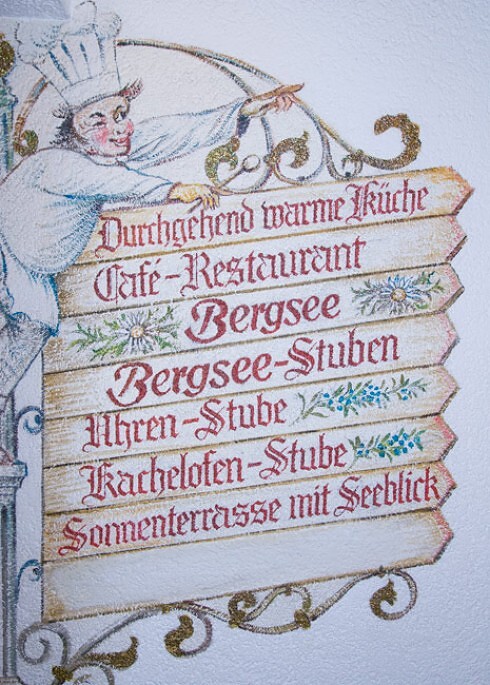 Durchgehend warme Küche
Café-Restaurant
Bergsee
Bergsee-Stuben
Uhren-Stube
Kachelofen-Stube
Sonnenterrasse mit Seeblick